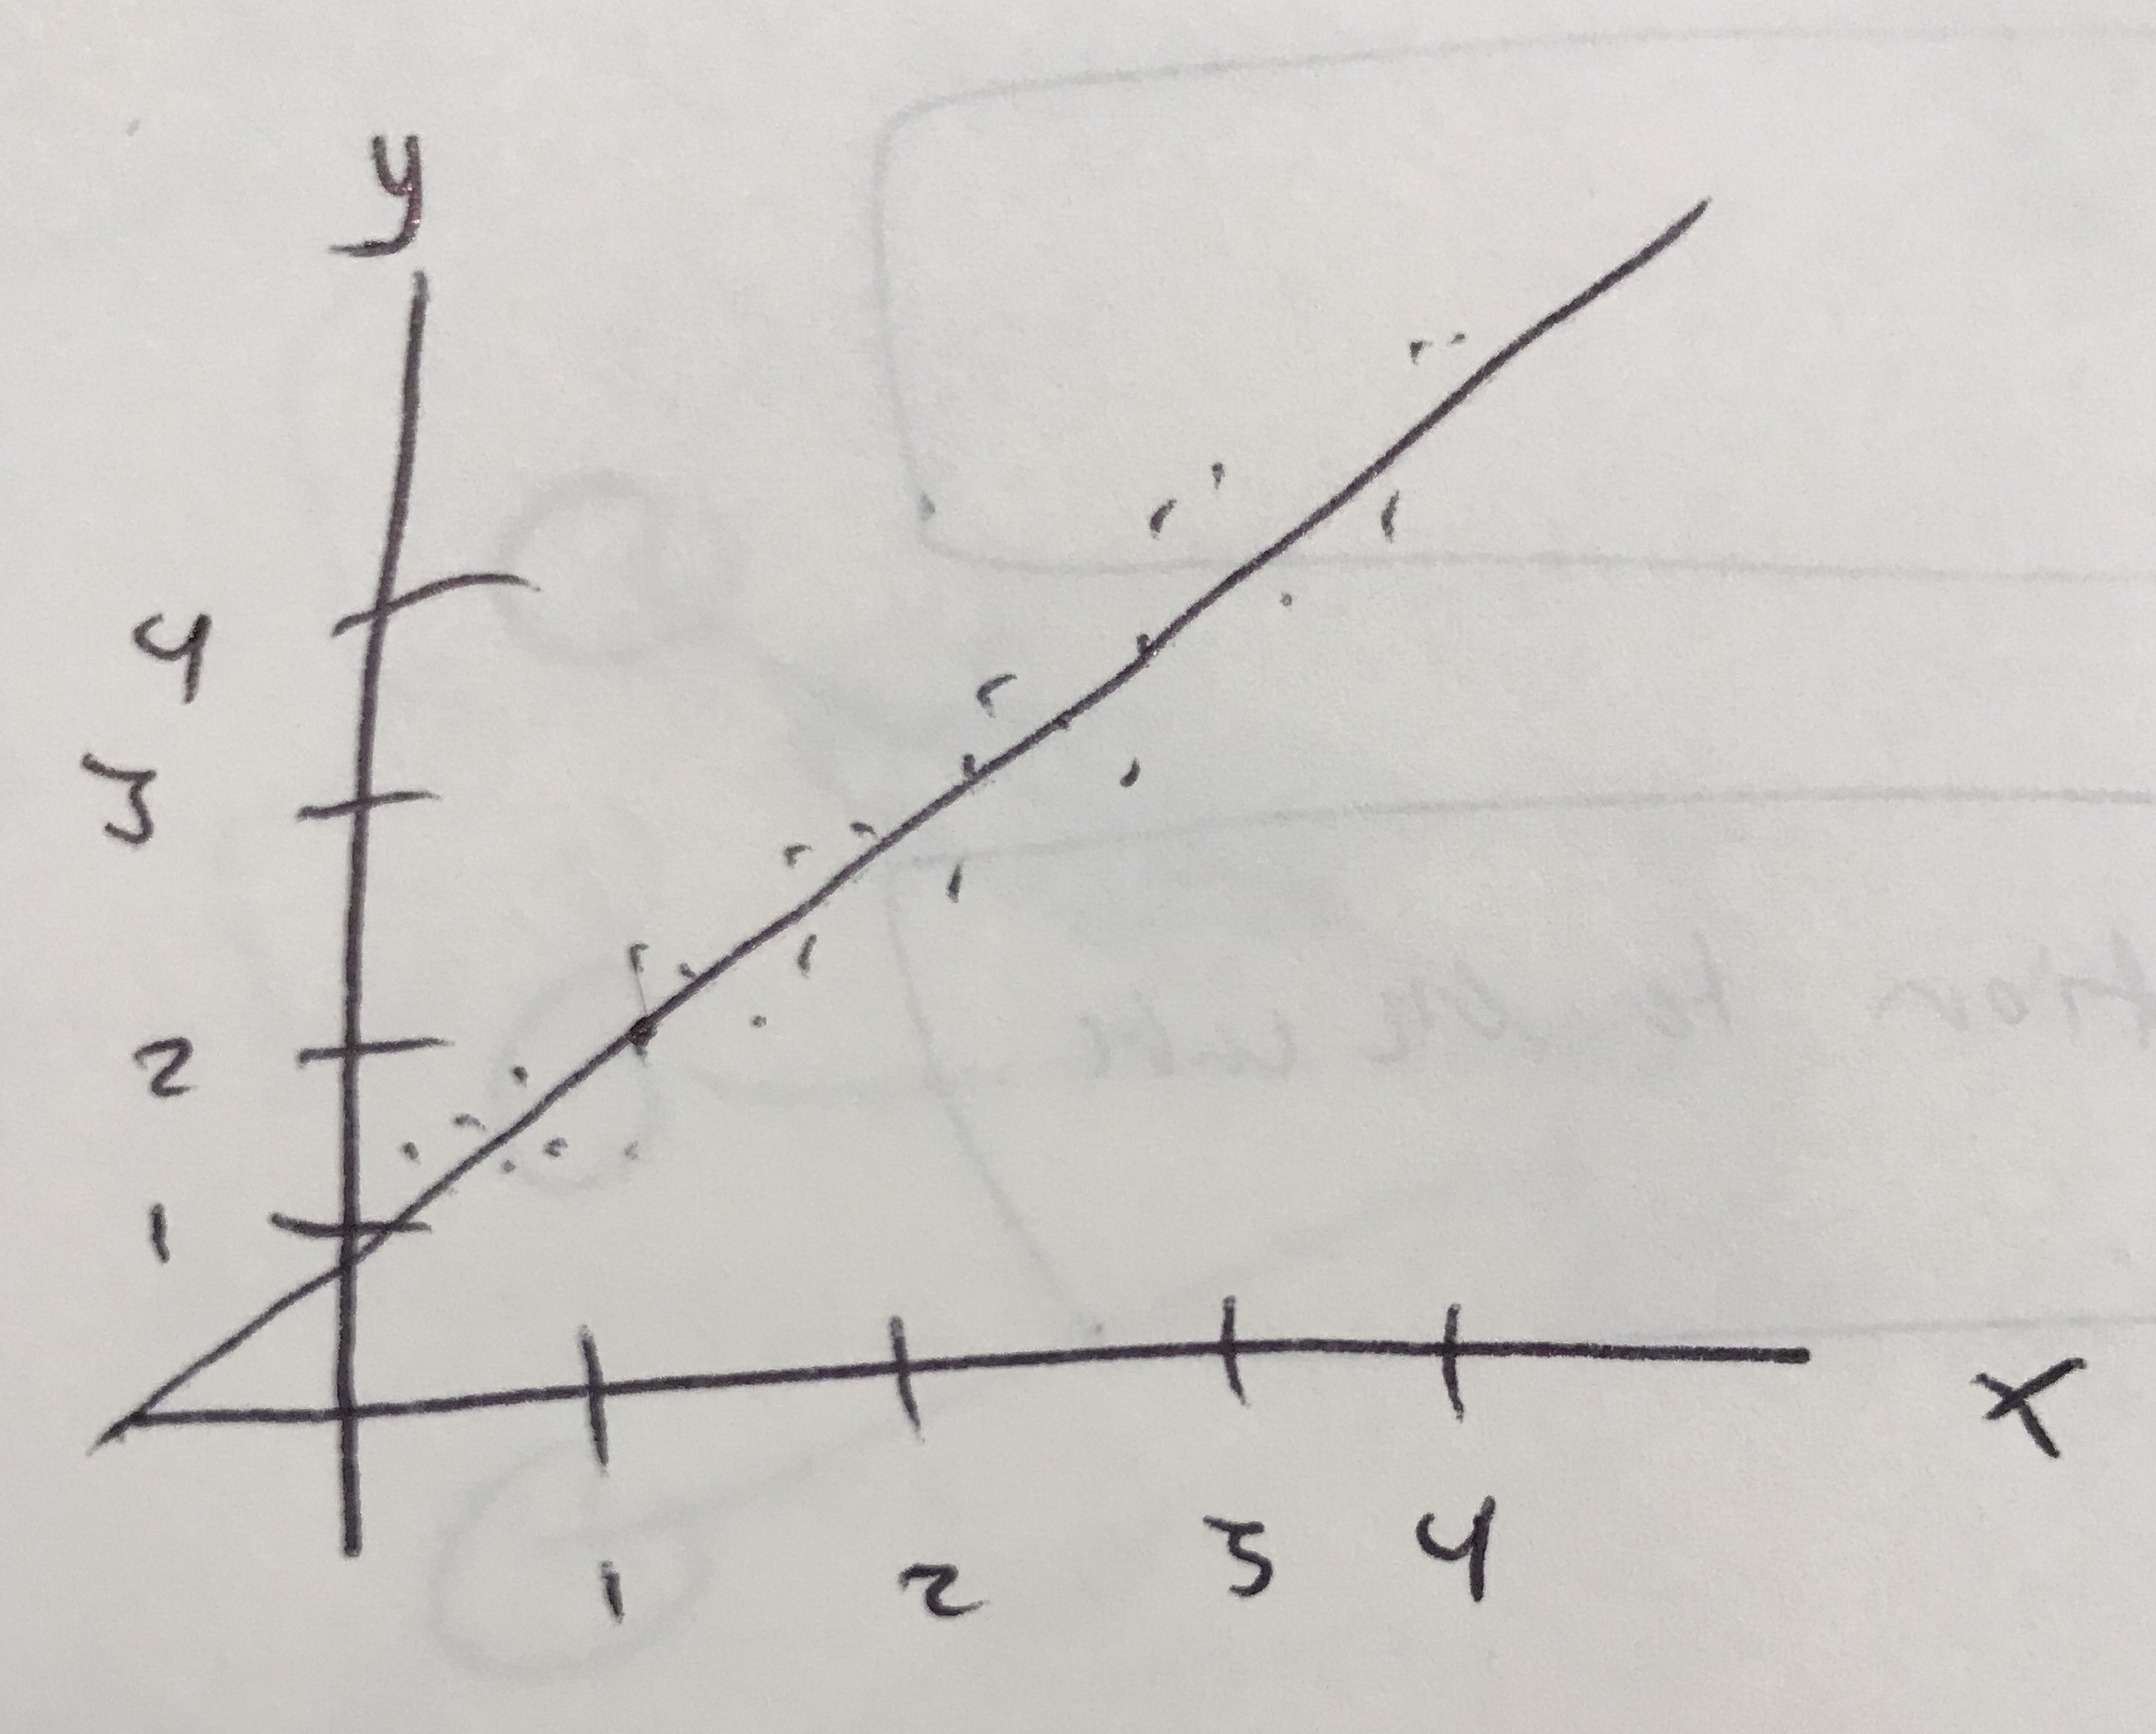 y
4
3
2
1
1 2 3 4
x